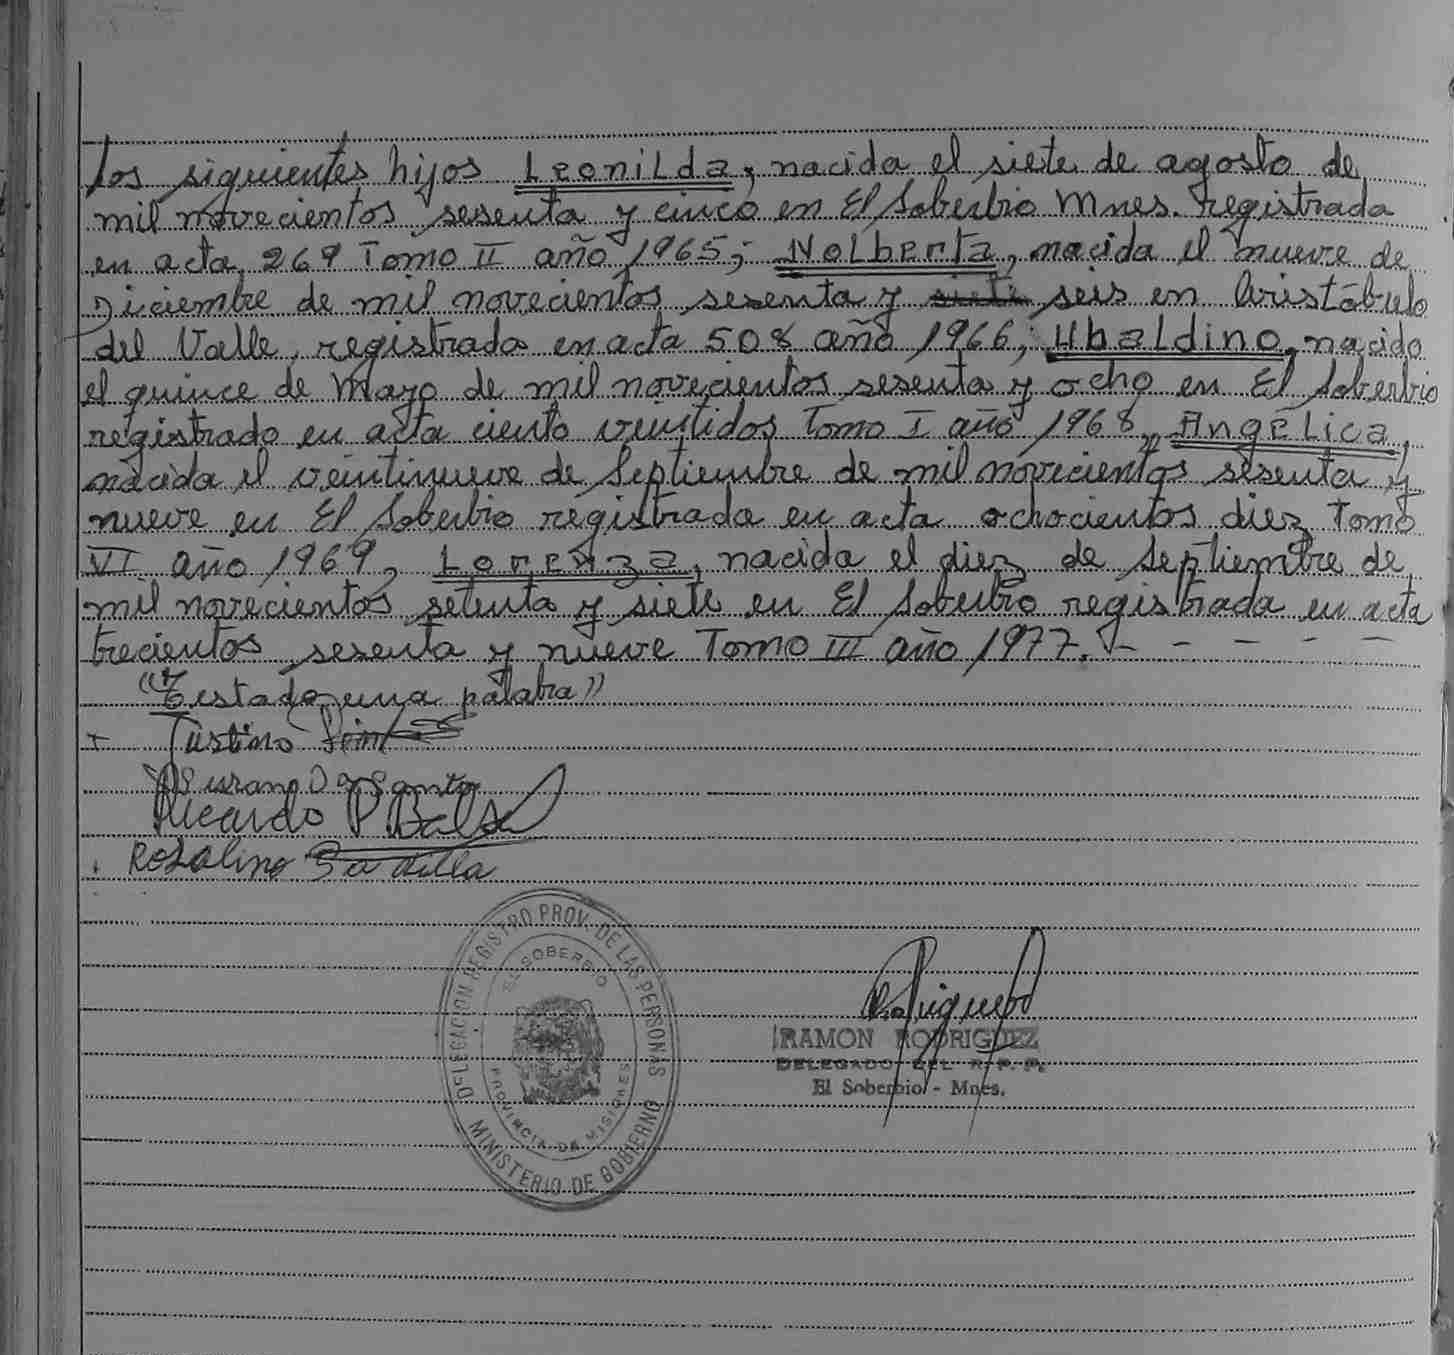 los siguientes hijos Leonilda, nacida el siete de agosto de
mil novecientos sesenta y cinco en El Soberbio Mnes. registrada
en acta 269 Tomo II año 1965; Nolberta, nacida el nueve de
Diciembre de mil novecientos sesenta y siete seis en Aristóbulo
del Valle, registrada en acta 508 año 1966; Ubaldino, nacido
el quince de Mayo de mil novecientos sesenta y ocho en El Soberbio
registrado en acta ciento veintidos Tomo I año 1968, Angélica,
nacida el veintinueve de Septiembre de mil novecientos sesenta y
nueve en El Soberbio registrada en acta ochocientos diez Tomo
VI año 1969, Lorenza, nacida el diez de Septiembre de
mil novecientos setenta y siete en El Soberbio registrada en acta
trecientos sesenta y nueve Tomo III año 1977. - - - - -
"Testado una palabra"
+ Justino
Ricardo P
Rosalino
DELEGACION REGISTRO PROV. DE LAS PERSONAS
EL SOBERBIO
PROVINCIA DE MISIONES
MINISTERIO DE GOBIERNO
RAMON RODRIGUEZ
DELEGADO DEL R. P. P.
El Soberbio - Mnes.